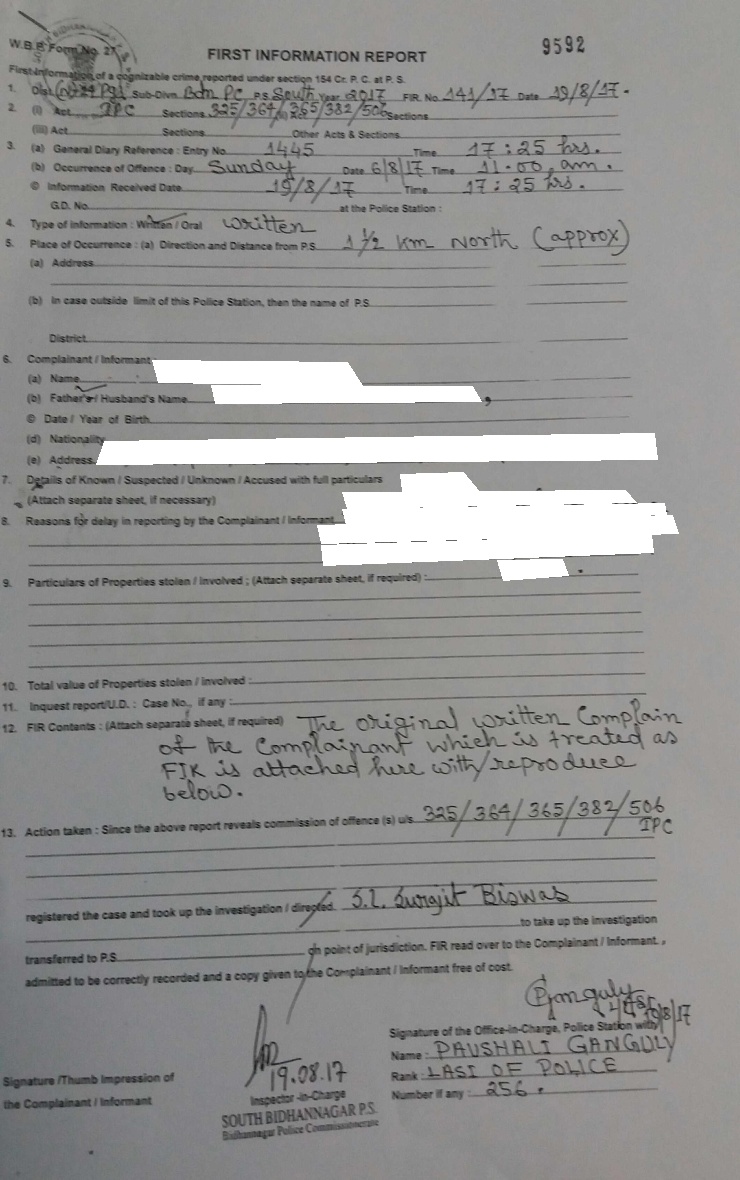 W.B.P. Form No. 27
FIRST INFORMATION REPORT
9592
First Information of a cognizable crime reported under section 154 Cr. P. C. at P. S.
1. Dist. Sub-Divn. Bdn PC P.S. South Year 2017 FIR. No. 141/17 Date 19/8/17.
2. (i) Act IPC Sections 325/364/365/382/506 Sections
(iii) Act Sections Other Acts & Sections
3. (a) General Diary Reference : Entry No. 1445 Time 17:25 hrs.
(b) Occurrence of Offence : Day Sunday Date 6/8/17 Time 11.00, am.
© Information Received Date 19/8/17 Time 17:25 hrs.
G.D. No. at the Police Station :
4. Type of information : Written / Oral written
5. Place of Occurrence : (a) Direction and Distance from P.S. 1 ½ Km North (approx)
(a) Address
(b) In case outside limit of this Police Station, then the name of P.S.
District
6. Complainant / Informant
(a) Name
(b) Father's / Husband's Name ,
© Date / Year of Birth
(d) Nationality
(e) Address
7. Details of Known / Suspected / Unknown / Accused with full particulars
(Attach separate sheet, if necessary)
8. Reasons for delay in reporting by the Complainant / Informant
9. Particulars of Properties stolen / involved ; (Attach separate sheet, if required) :
10. Total value of Properties stolen / involved :
11. Inquest report/U.D. : Case No., if any :
12. FIR Contents : (Attach separate sheet, if required) The original written Complain
of the Complainant which is treated as
FIR is attached here with/reproduce
below.
13. Action taken : Since the above report reveals commission of offence (s) u/s 325/364/365/382/506
IPC
registered the case and took up the investigation / directed S.I. Surgit Biswas
to take up the investigation
transferred to P.S. on point of jurisdiction. FIR read over to the Complainant / Informant ,
admitted to be correctly recorded and a copy given to the Complainant / Informant free of cost.
PGanguly
19/8/17
Signature of the Office-in-Charge, Police Station with
Name : PAUSHALI GANGULY
Rank : LASI OF POLICE
Number if any : 256.
19.08.17
Signature /Thumb Impression of
the Complainant / Informant
Inspector-in-Charge
SOUTH BIDHANNAGAR P.S.
Bidhannagar Police Commissionerate